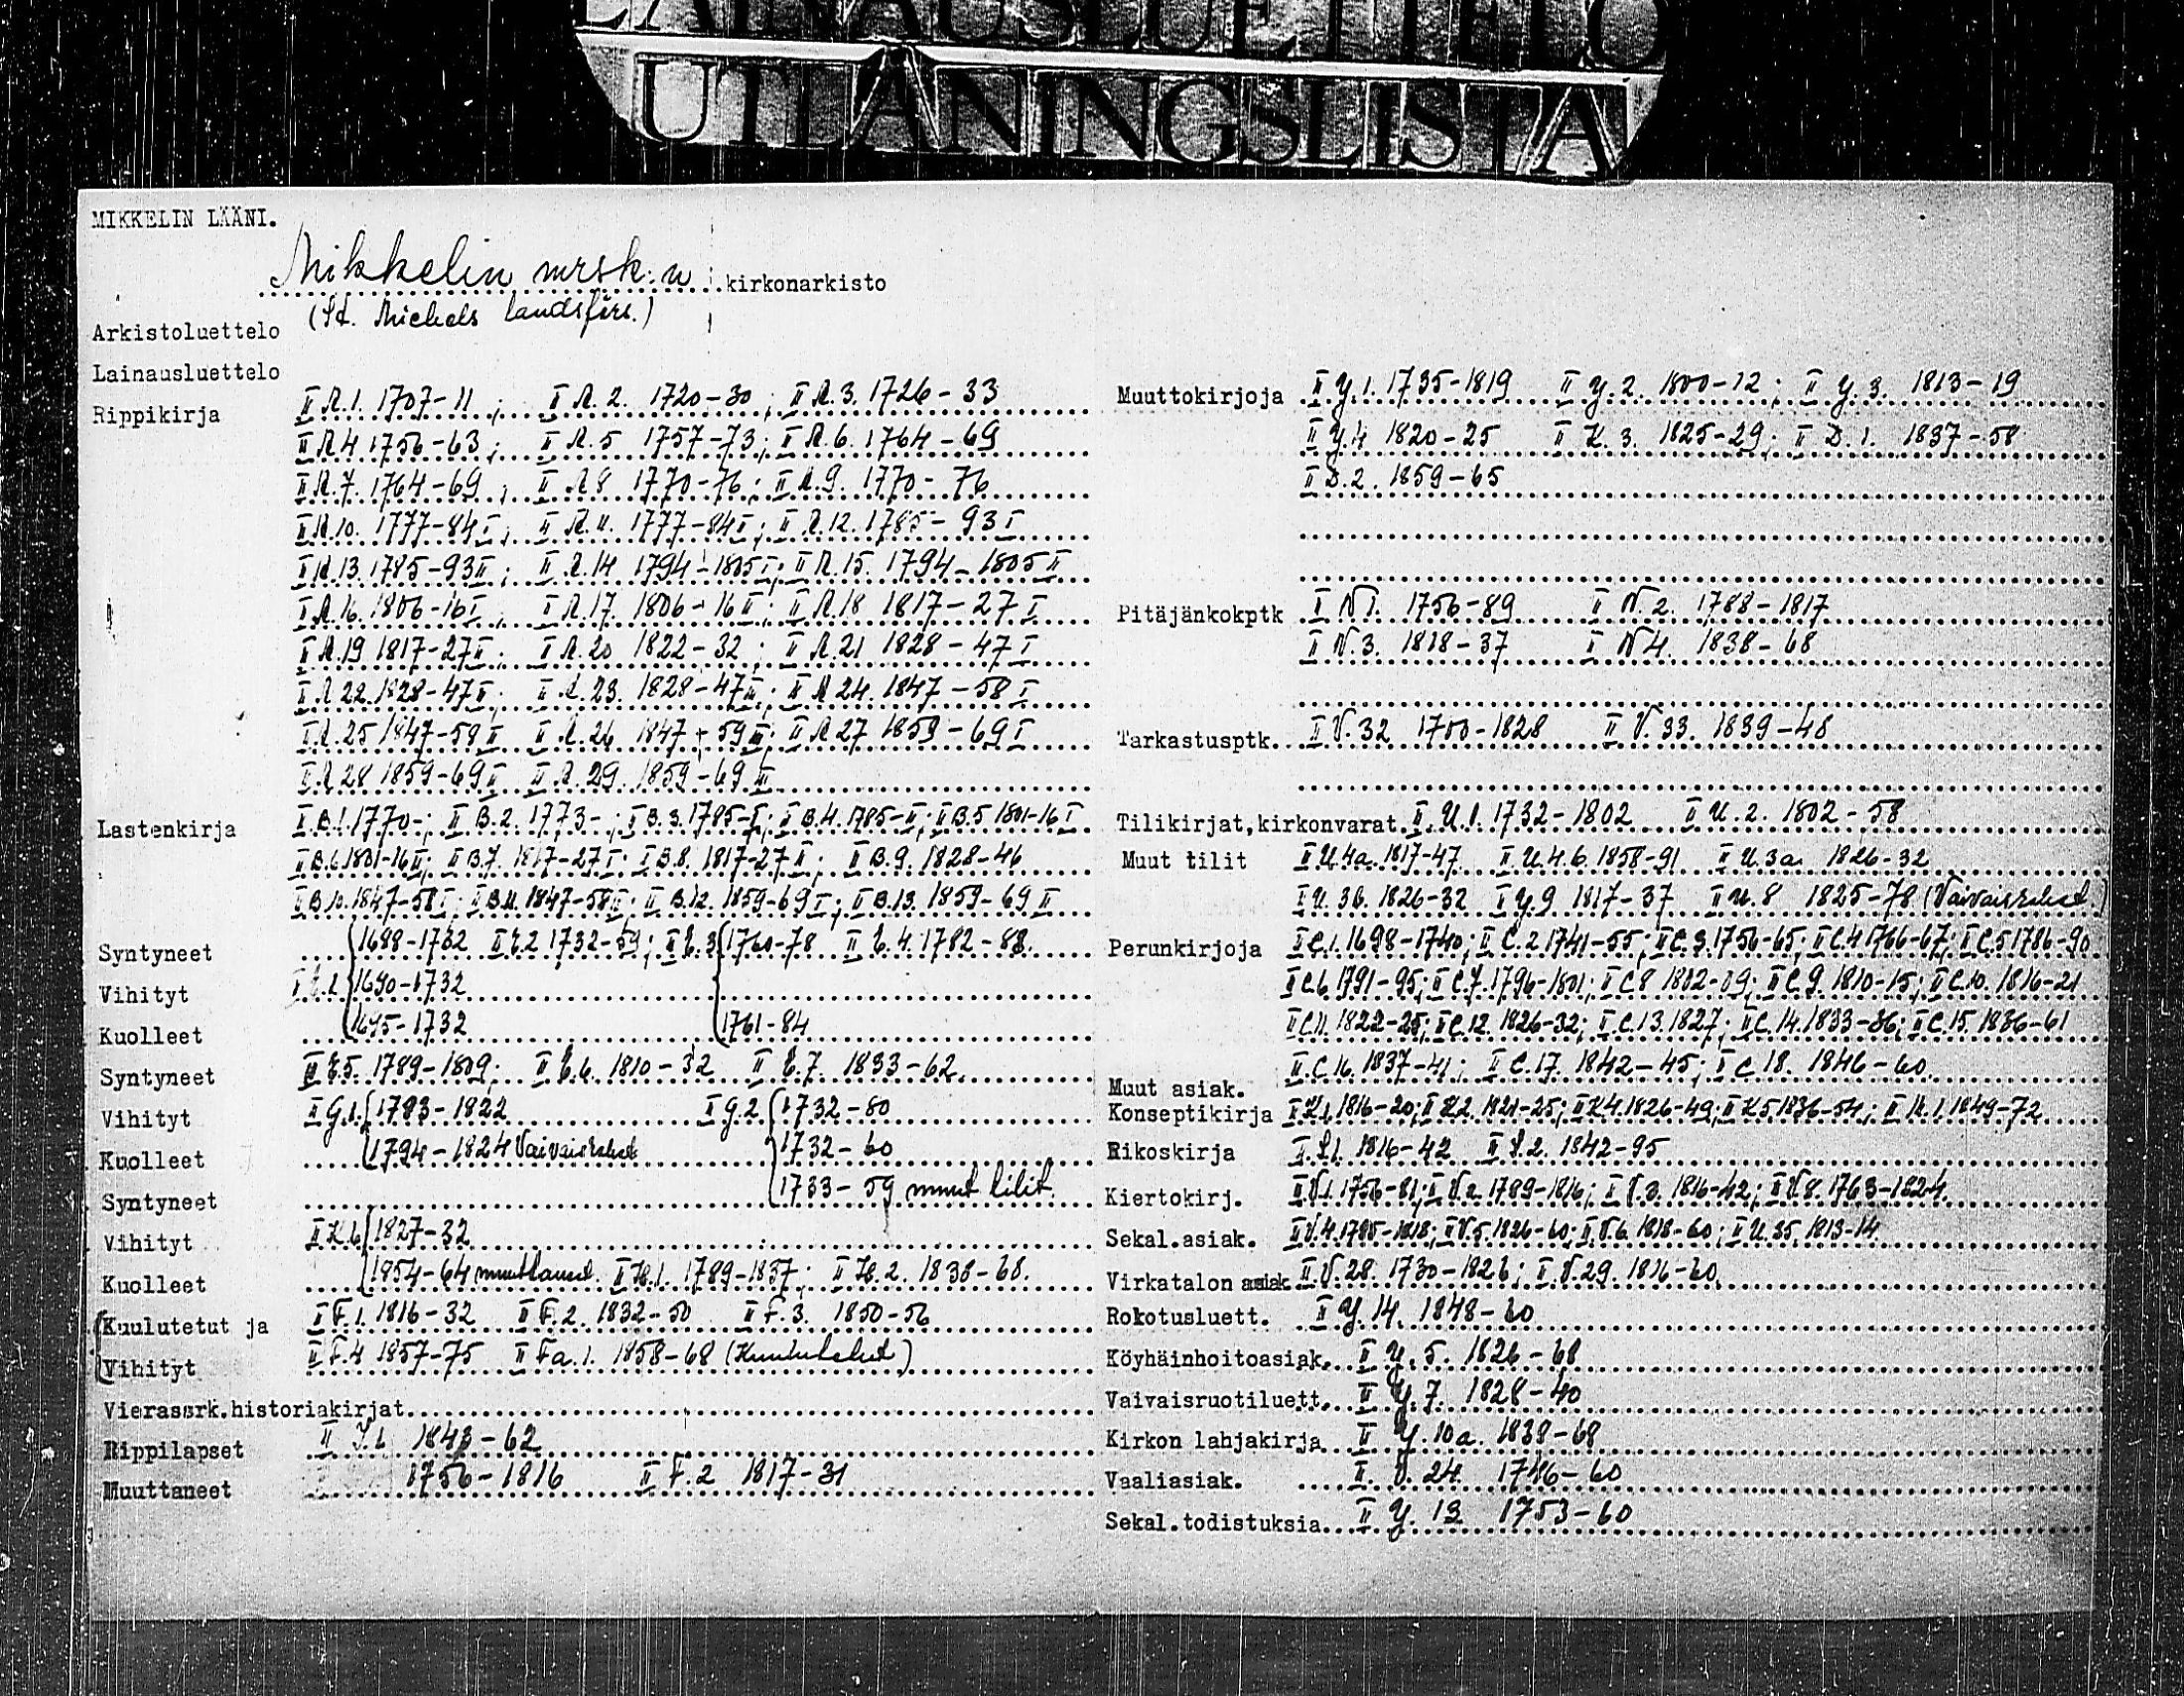 LAINAUSLUETTELO
UTLÅNINGSLISTA
MIKKELIN LÄÄNI.
Mikkelin mrsk:n kirkonarkisto
(St. Michels landsförs.)
Arkistoluettelo
Lainausluettelo
Rippikirja II A.1. 1707-11; II A.2. 1720-30; II A.3. 1726-33
II A.4 1756-63; II A.5 1757-73; II A.6. 1764-69
II A.7. 1764-69; II A 8 1770-76; II A.9. 1770-76
II A.10. 1777-84 I; II A.11. 1777-84 I; II A.12. 1785-93 I
II A.13. 1785-93 II; II A.14 1794-1805 I; II A.15. 1794-1805 II
II A.16. 1806-16 I, II A.17. 1806-16 II; II A.18 1817-27 I
II A.19 1817-27 II; II A.20 1822-32; II A.21 1828-47 I
II A 22. 1828-47 II; II A.23. 1828-47 III; II A 24. 1847-58 I
II A.25 1847-58 II II A.26 1847-59 III; II A 27 1859-69 I
II A 28 1859-69 II II A.29. 1859-69 III
Lastenkirja II B.1. 1770-; II B.2. 1773-; II B.3. 1785-I; II B.4. 1785-II; II B.5 1801-16 I
II B.6. 1801-16 II; II B.7. 1817-27 I; II B.8. 1817-27 II; II B.9. 1828-46
II B.10. 1847-58 I; II B.11. 1847-58 II; II B.12. 1859-69 I; II B.13. 1859-69 II
Syntyneet 1688-1732 II E.2 1732-59; II E.3 1760-78 II E.4. 1782-88.
Vihityt II E.1. 1690-1732
Kuolleet 1695-1732 1761-84
Syntyneet II E.5. 1789-1809; II E.6. 1810-32 II E.7. 1833-62.
Vihityt II G.1. 1783-1822 II G.2 1732-80
Kuolleet 1794-1824 Vaivaisrahast 1732-60
Syntyneet 1733-59 muut tilit.
Vihityt II K.6 1827-32
Kuolleet 1954-64 muuttaneet. II H.1. 1789-1837; II H.2. 1838-68.
Kuulutetut ja II F.1. 1816-32 II F.2. 1832-50 II F.3. 1850-56
Vihityt II F.4 1857-75 II Fa.1. 1858-68 (Kuulutetut)
Vierassrk.historiakirjat
Rippilapset II J.1. 1843-62
Muuttaneet 1756-1816 II F.2 1817-31
Muuttokirjoja II Y.1. 1735-1819 II Y.2. 1800-12; II Y.3. 1813-19
II Y.4 1820-25 II K.3. 1825-29; II D.1. 1837-58
II D.2. 1859-65
Pitäjänkokptk II N 1. 1756-89 II N.2. 1788-1817
II N.3. 1818-37 II N 4. 1838-68
Tarkastusptk. II V.32 1700-1828 II V.33. 1839-48
Tilikirjat,kirkonvarat II U.1. 1732-1802 II U.2. 1802-58
Muut tilit II U.4a. 1817-47 II U.4.b. 1858-91 II U.3a 1826-32
II U.3b. 1826-32 II Y.9 1817-37 II U.8 1825-78 (Vaivaisrahast.)
Perunkirjoja II C.1. 1698-1740; II C.2 1741-55; II C.3. 1756-65; II C.4 1766-67; II C.5 1786-90
II C.6 1791-95; II C.7. 1796-1801; II C 8 1802-09; II C.9. 1810-15; II C.10. 1816-21
II C.11. 1822-25; II C.12. 1826-32; II C.13. 1827; II C.14. 1833-36; II C.15. 1836-61
II C.16. 1837-41; II C.17. 1842-45; II C 18. 1846-60.
Muut asiak.
Konseptikirja II K.1. 1816-20; II K.2. 1821-25; II K4. 1826-49; II K5 1836-54; II K.1. 1849-72
Rikoskirja II S.1. 1816-42 II S.2. 1842-95
Kiertokirj. II V.1. 1756-81; II V.2. 1789-1816; II V.3. 1816-42; II V.8. 1763-1824.
Sekal.asiak. II V.4. 1785-1818; II V.5. 1826-60; II V.6. 1818-60; II U.35. 1813-14
Virkatalon asiak II V.28. 1730-1826; II V.29. 1816-60
Rokotusluett. II Y.14. 1848-60
Köyhäinhoitoasiak. II Y.5. 1826-68
Vaivaisruotiluett. II Y.7 1828-40
Kirkon lahjakirja II Y.10a. 1838-68
Vaaliasiak. II V.24. 1746-60
Sekal.todistuksia II Y.13 1753-60